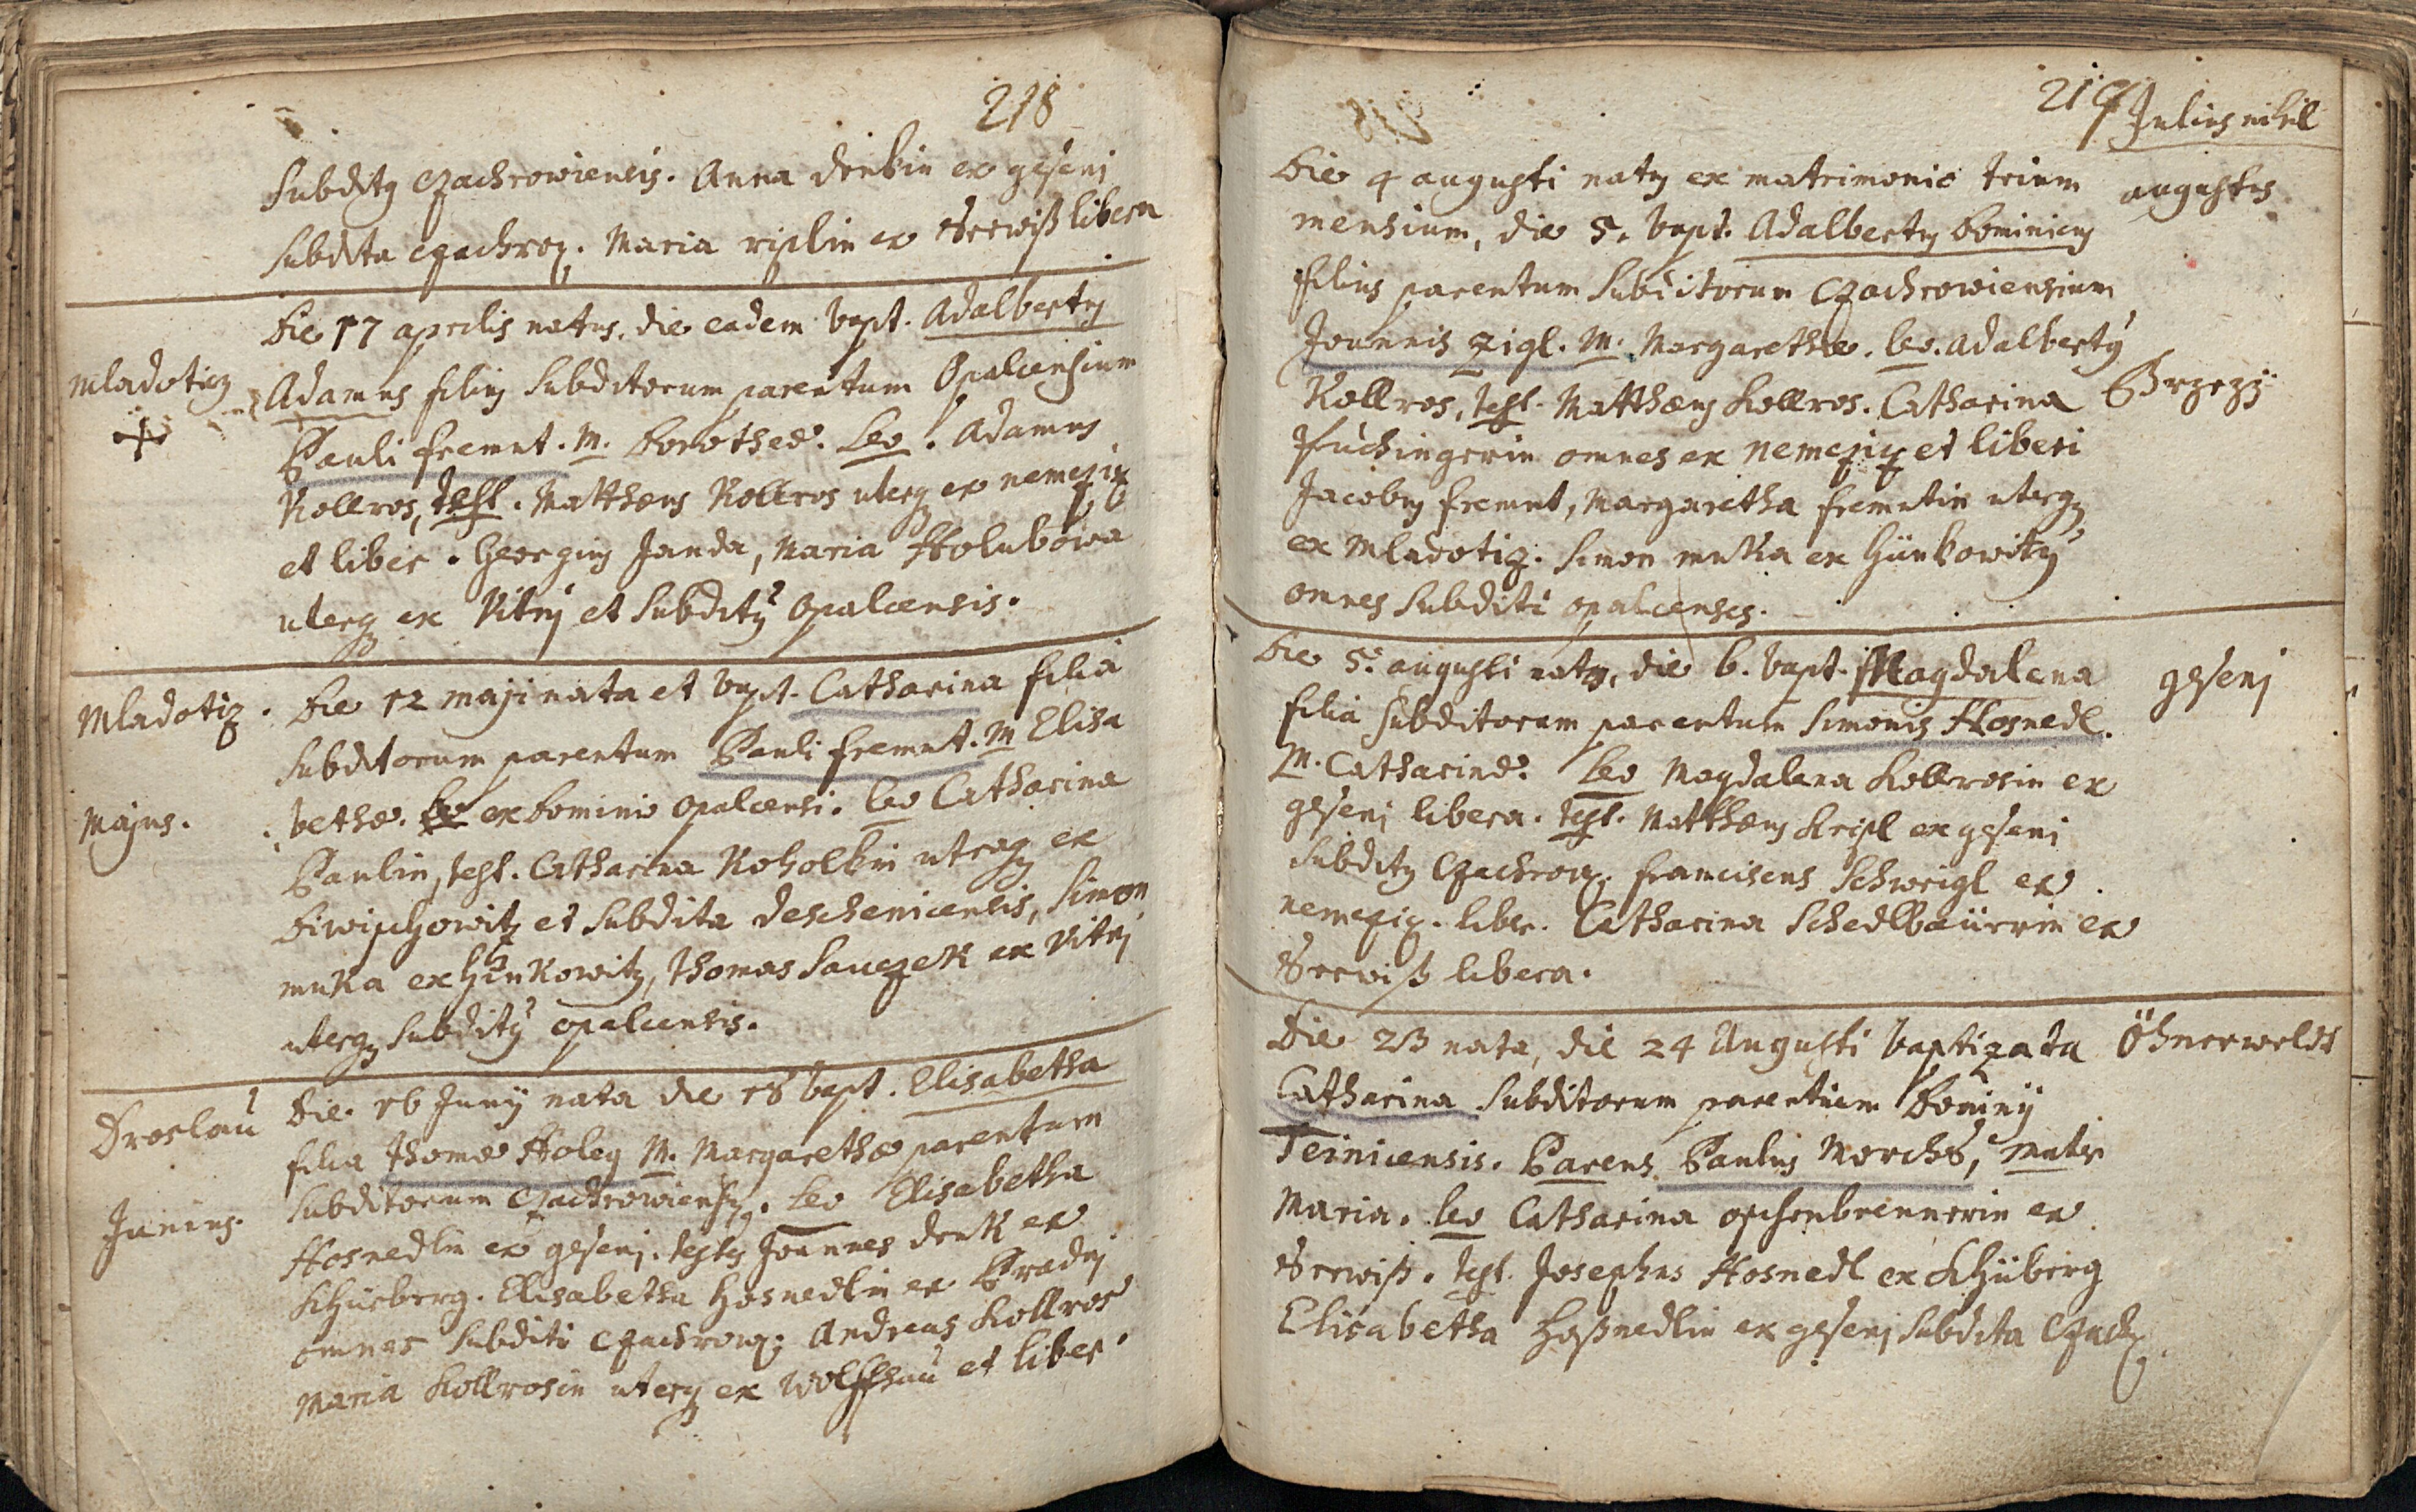 218
Subditg Czachrowiensis. Anna denkin ex gesenj
subdita czachroy. Maria riplin ex Seewiß libera
Die 17 aprilis natus, die eadem bapt. Adalbertg
Mladoticz
Adamus filig subditorum parentum Opalcensium
Pauli fremut. M. Dorotheae. Leo. Adamus
Kollros, Test. Matthaeus Kollros uterq ex nemeziz
et liber. Georgius Janda, Maria Holubowa
uterq ex Vitnj et subditi Opalcensis.
Mladotiz. Die 12 maji nata et bapt. Catharina filia
subditorum parentum Pauli fremut. M Elisa
Majus. bethae. ex Dominio opalcensi. Leo Catharina
Paulin, test. Catharina Koholkin utraq ex
Diwischowitz et subdita deschenicensis, Simon
muka ex Hinkowitz, Thomas Sauczek ex Vitnj
uterq subditi opalcensis.
Droslau Die 16 Junij nata die 18 bapt. Elisabetha
filia Thomae Holeg M. Margarethae parentum
Junius. subditorum Czachrowiensy. Leo Elisabetha
Hosnedlin ex gesenj. testes Joannes denk ex
Khueberg. Elisabetha Hosnedlin ex Bradnj
omnes subditi czachrow. Andreas Kollros
Maria Kollrosin uterq ex Wolfshau et liber.
219 Julius nihil
Die 4 augusti natg ex matrimonio trium augustus
mensium, die 5. bapt. Adalbertg Dominicg
filius parentum subditorum Czachrowiensium
Joannis Zigl. M. Margarethae. Leo. Adalbertg
Kollros, test. Matthaeus Kollros. Catharina Brzezy
Fuchingerin omnes ex nemeziz et liberi
Jacobg fremut, Margaretha fremutin uterq
ex Mladotiz. Simon muka ex Hünkowitz
omnes subditi opalcenses.
Die 5. augusti nata, die 6. bapt. Magdalena gesenj
filia subditorum parentum Simonis Hosnedl.
M. Catharinae. Leo Magdalena Kollrosin ex
gesenj libera. test. Matthaeus Kripl ex gesenj
subditg Czachrow. Franciscus Schweigl ex
nemeziz. liber. Catharina Schedlbauerin ex
Seewiß libera.
Die 23 nata, die 24 Augusti baptizata Öhnerweldt
Catharina subditorum parentum Dominij
Teinicensis. Parens Paulus Morchs, Mater
Maria. Leo Catharina opsenbrennerin ex
Seewiß. test. Josephus Hosnedl ex Khüberg
Elisabetha Hoßnedlin ex gesenj subdita Czach